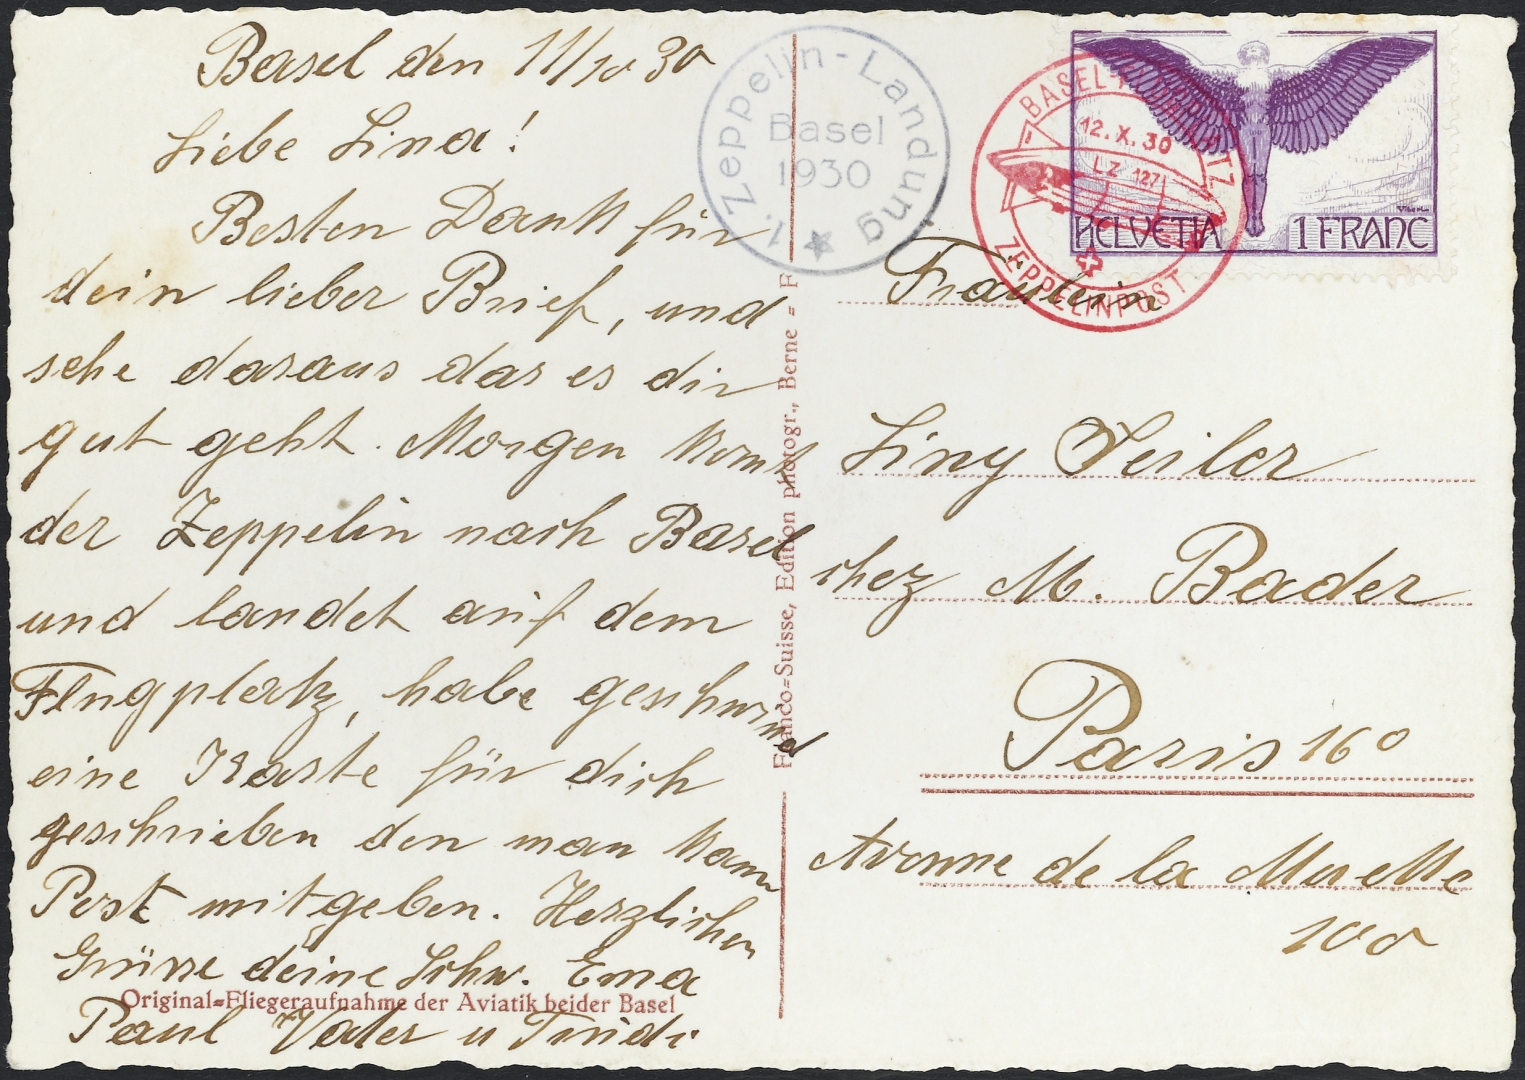 Basel den 11/10 30
Liebe Lina!
Besten Dank für
dein lieber Brief, und
sehe daraus das es dir
gut geht. Morgen komt
der Zeppelin nach Basel
und landet auf dem
Flugplatz, habe geschwind
eine Karte für dich
geschrieben den man kann
Post mitgeben. Herzlichen
Grüsse deine Schw. Ema
Paul Vater u Trudi
Original=Fliegeraufnahme der Aviatik beider Basel
Franco=Suisse, Edition photogr., Berne = F
1. Zeppelin-Landung
Basel
1930
BASEL
12.X.30
LZ 127
ZEPPELINPOST
HELVETIA 1 FRANC
Fräulein
Liny Seiler
chez M. Bader
Paris 16°
Avenue de la Muette
100